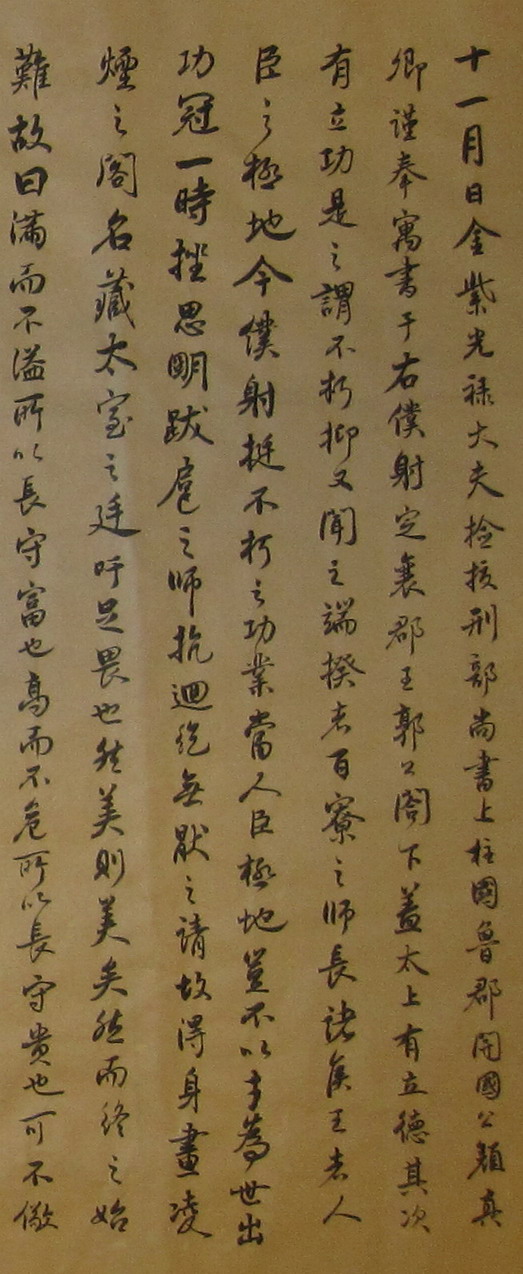 十一月日金紫光祿大夫檢挍刑部尚書上柱國魯郡開國公顏真
卿謹奉寓書于右僕射定襄郡王郭公閤下蓋太上有立德其次
有立功是之謂不朽抑又聞之端揆者百寮之師長諸侯王者人
臣之極地今僕射挺不朽之功業當人臣極地豈不以才為世出
功冠一時挫思明跋扈之師抗迴紇無厭之請故得身畫凌
煙之閣名藏太室之廷吁足畏也然美則美矣然而終之始
難故曰滿而不溢所以長守富也高而不危所以長守貴也可不儆